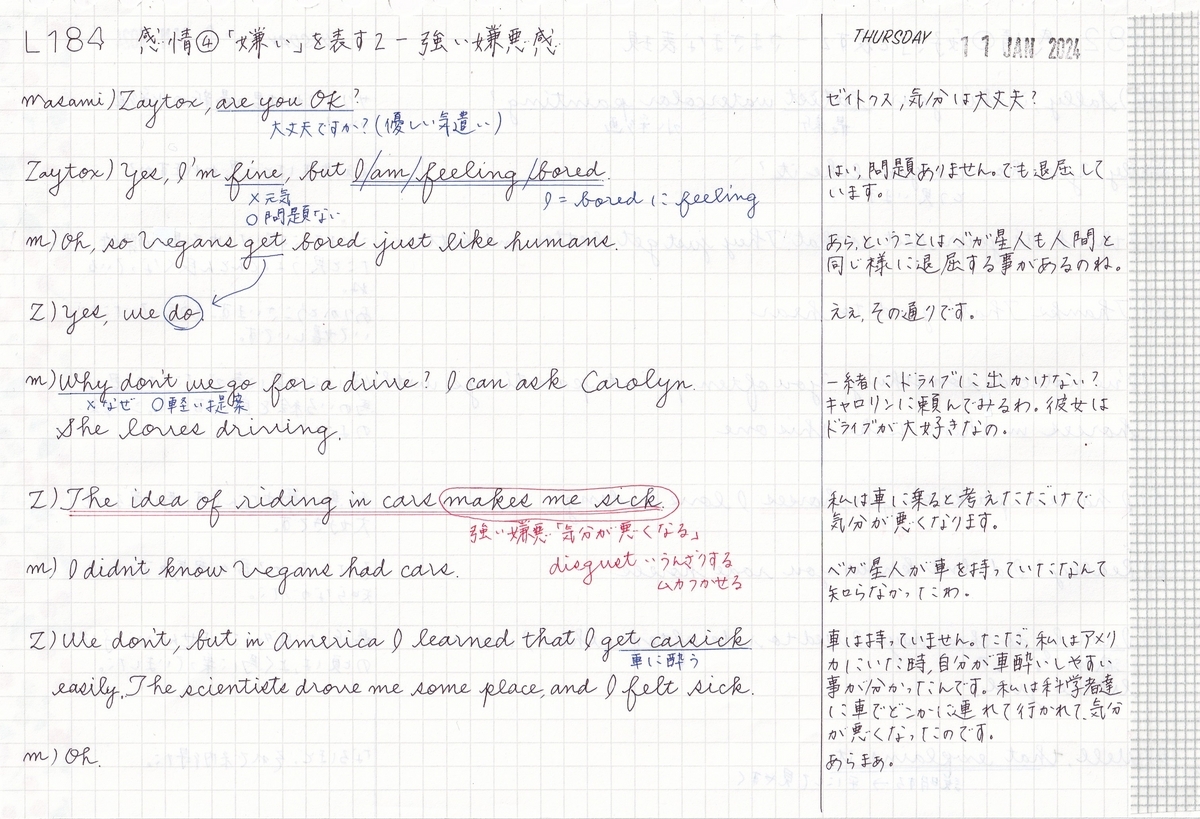 L184 感情④「嫌い」を表す2-強い嫌悪感
THURSDAY 11 JAN 2024
Masami) Zaytox, are you OK?
大丈夫ですか?(優しい気遣い)
ゼイトクス,気分は大丈夫?
Zaytox) Yes, I'm fine, but I/am/feeling/bored.
×元気
○問題ない
I = bored に feeling
はい,問題ありません。でも退屈して
います。
M) Oh, so Vegans get bored just like humans.
あら,ということはベガ星人も人間と
同じ様に退屈する事があるのね。
Z) Yes, we do.
ええ,その通りです。
M) Why don't we go for a drive? I can ask Carolyn.
×なぜ ○軽い提案
She loves driving.
一緒にドライブに出かけない?
キャロリンに頼んでみるわ。彼女は
ドライブが大好きなの。
Z) The idea of riding in cars makes me sick.
強い嫌悪「気分が悪くなる」
私は車に乗ると考えただけで
気分が悪くなります。
M) I didn't know Vegans had cars.
disgust‥うんざりする
ムカつかせる
ベガ星人が車を持っていたなんて
知らなかったわ。
Z) We don't, but in America I learned that I get carsick
車に酔う
easily. The scientists drove me some place, and I felt sick.
車は持っていません。ただ,私はアメリ
カにいた時,自分が車酔いしやすい
事が分かったんです。私は科学者達
に車でどこかに連れて行かれて,気分
が悪くなったのです。
M) Oh.
あらまぁ。